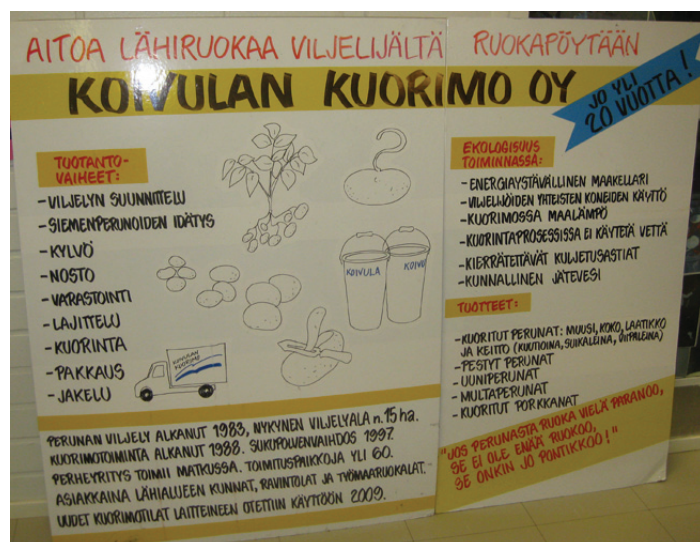 AITOA LÄHIRUOKAA VILJELIJÄLTÄ RUOKAPÖYTÄÄN
KOIVULAN KUORIMO OY
JO YLI
20 VUOTTA!
TUOTANTO-
VAIHEET:
-VILJELYN SUUNNITTELU
-SIEMENPERUNOIDEN IDÄTYS
-KYLVÖ
-NOSTO
-VARASTOINTI
-LAJITTELU
-KUORINTA
-PAKKAUS
-JAKELU
KOIVULA
KOIVU
KOIVULAN
KUORIMO
PERUNAN VILJELY ALKANUT 1983, NYKYNEN VILJELYALA n. 15 ha.
KUORIMOTOIMINTA ALKANUT 1988. SUKUPOLVENVAIHDOS 1997.
PERHEYRITYS TOIMII MATKUSSA. TOIMITUSPAIKKOJA YLI 60.
ASIAKKAINA LÄHIALUEEN KUNNAT, RAVINTOLAT JA TYÖMAARUOKALAT.
UUDET KUORIMOTILAT LAITTEINEEN OTETTIIN KÄYTTÖÖN 2009.
EKOLOGISUUS
TOIMINNASSA:
-ENERGIAYSTÄVÄLLINEN MAAKELLARI
-VILJELIJÖIDEN YHTEISTEN KONEIDEN KÄYTTÖ
-KUORIMOSSA MAALÄMPÖ
-KUORINTAPROSESSISSA EI KÄYTETÄ VETTÄ
-KIERRÄTETTÄVÄT KULJETUSASTIAT
-KUNNALLINEN JÄTEVESI
TUOTTEET:
-KUORITUT PERUNAT: MUUSI, KOKO, LAATIKKO
JA KEITTO (KUUTIOINA, SUIKALEINA, VIIPALEINA)
-PESTYT PERUNAT
-UUNIPERUNAT
-MULTAPERUNAT
-KUORITUT PORKKANAT
"JOS PERUNASTA RUOKA VIELÄ PARANOO,
SE EI OLE ENÄÄ RUOKOO,
SE ONKIN JO PONTIKKOO!"